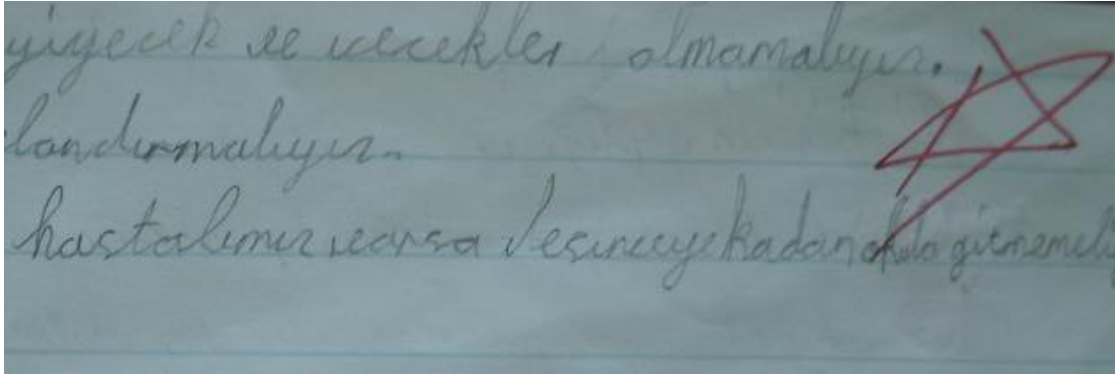 yiyecek ve içecekler almamalıyız.
landırmalıyız.
hastalımız varsa geçinceye kadar okula gitmemeliy